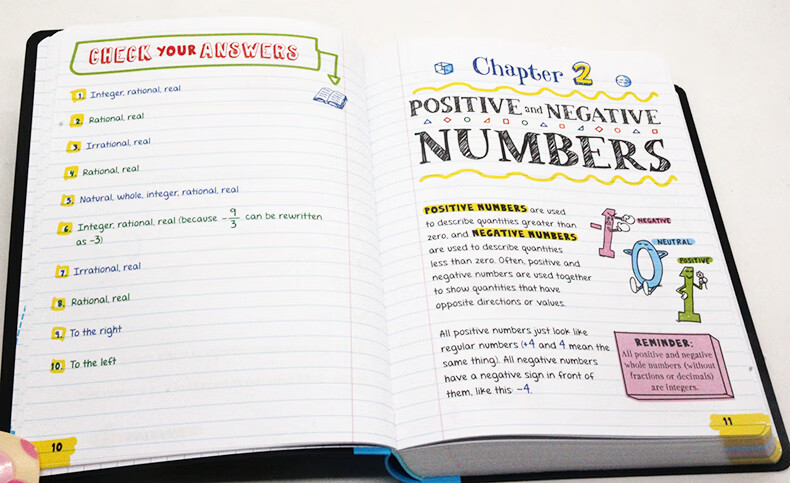 CHECK YOUR ANSWERS
1. Integer, rational, real
2. Rational, real
3. Irrational, real
4. Rational, real
5. Natural, whole, integer, rational, real
6. Integer, rational, real (because -9/3 can be rewritten
as -3)
7. Irrational, real
8. Rational, real
9. To the right
10. To the left
10
Chapter 2
POSITIVE and NEGATIVE
NUMBERS
POSITIVE NUMBERS are used
to describe quantities greater than
zero, and NEGATIVE NUMBERS
are used to describe quantities
less than zero. Often, positive and
negative numbers are used together
to show quantities that have
opposite directions or values.
-1 NEGATIVE
0 NEUTRAL
1 POSITIVE
All positive numbers just look like
regular numbers (+4 and 4 mean the
same thing). All negative numbers
have a negative sign in front of
them, like this: -4.
REMINDER:
All positive and negative
whole numbers (without
fractions or decimals)
are integers.
11